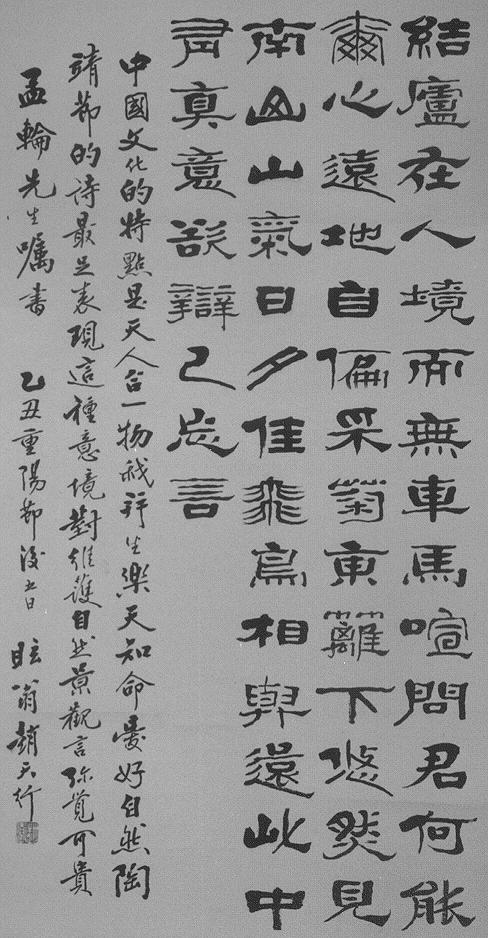 結廬在人境而無車馬喧問君何能
爾心遠地自偏采菊東籬下悠然見
南山山氣日夕佳飛鳥相與還此中
有真意欲辯已忘言
中國文化的特點是天人合一物我并生樂天知命愛好自然陶
靖節的詩最足表現這種意境對維護自然景觀言弥覺可貴
孟輪先生囑書 乙丑重陽節後五日 眩翁趙天行